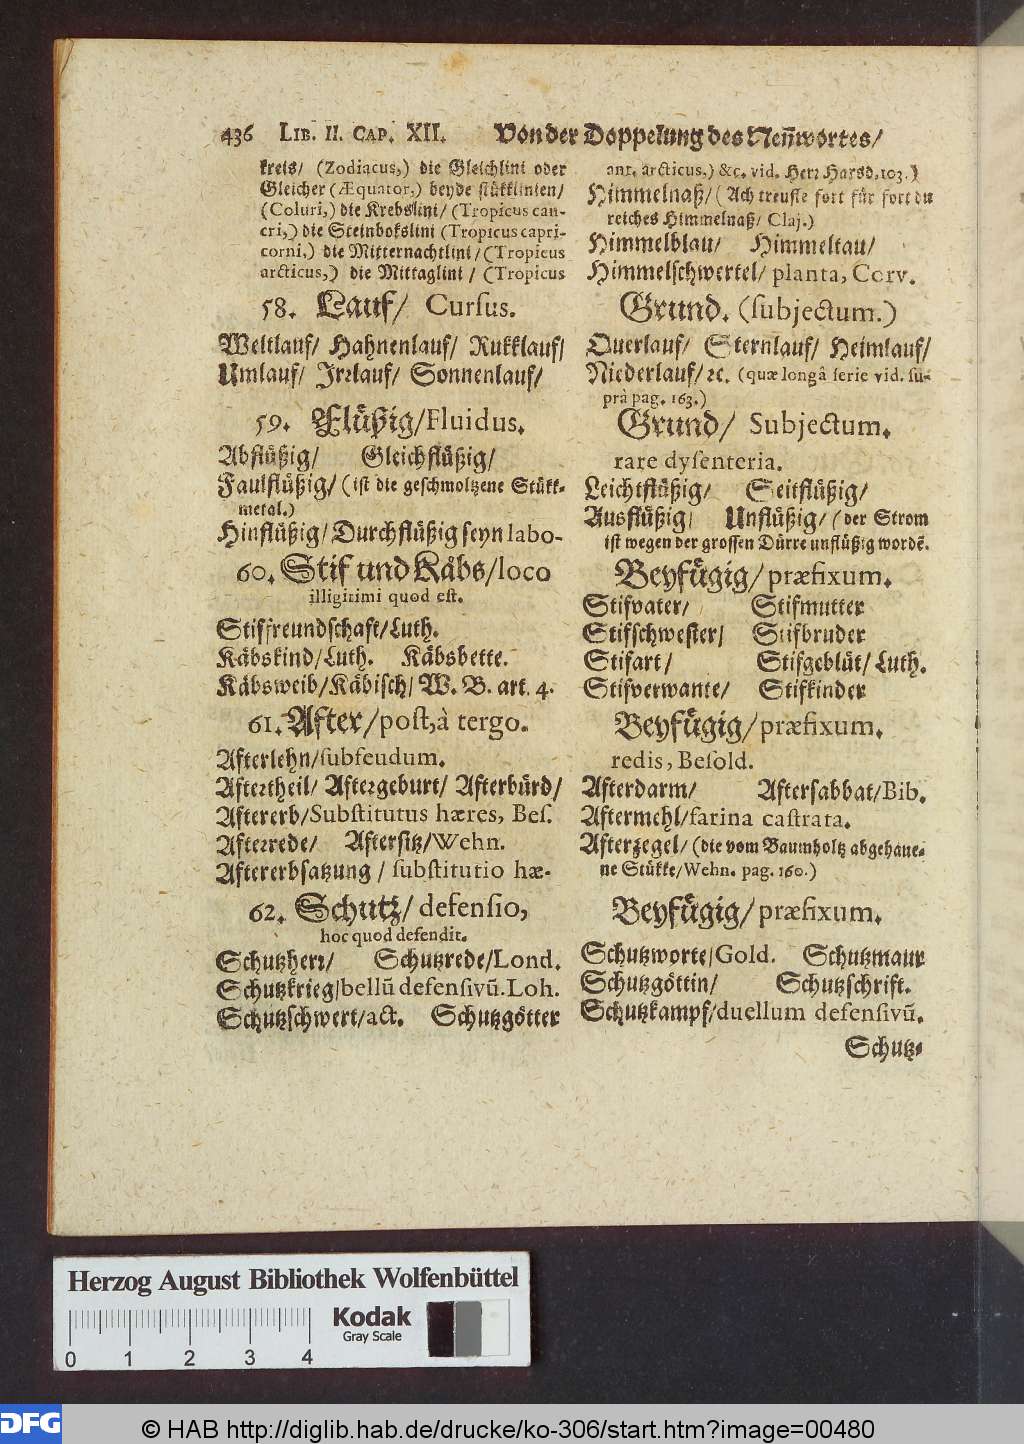 436 LIB. II. CAP. XII. Von der Doppelung des Neñwortes/
kreis/ (Zodiacus,) die Gleichlini oder
Gleicher (Æquator,) beyde stükklinien/
(Coluri,) die Krebslini/ (Tropicus can-
cri,) die Steinbokslini (Tropicus capri-
corni,) die Mitternachtlini/ (Tropicus
arcticus,) die Mittaglini / (Tropicus
ant. arcticus.) &c. vid. Herꝛ Harsd. 103.)
Himmelnaß/ (Ach treufle fort für fort du
reiches Himmelnaß/ Claj.)
Himmelblau/ Himmeltau/
Himmelschwertel/ planta, Corv.
58. Lauf/ Cursus.
Grund. (subjectum.)
Weltlauf/ Hahnenlauf/ Rukklauf/
Umlauf/ Irꝛlauf/ Sonnenlauf/
Querlauf/ Sternlauf/ Heimlauf/
Niederlauf/ ꝛc. (quæ longâ serie vid. su-
prà pag. 163.)
59. Flüßig/Fluidus.
Grund/ Subjectum.
Abflüßig/ Gleichflüßig/
Faulflüßig/ (ist die geschmoltzene Stükk-
metal.)
Hinflüßig/ Durchflüßig seyn labo-
rare dysenteria.
Leichtflüßig/ Seitflüßig/
Ausflüßig/ Unflüßig/ (der Strom
ist wegen der grossen Dürre unflüßig wordẽ.
60. Stif und Käbs/loco
illigitimi quod est.
Beyfügig/ præfixum.
Stiffreundschaft/Luth.
Käbskind/Luth. Käbsbette.
Käbsweib/Käbisch/ W. B. art. 4.
Stifvater/ Stifmutter
Stifschwester/ Stifbruder
Stifart/ Stifgeblüt/Luth.
Stifverwante/ Stifkinder
61. After/post, à tergo.
Beyfügig/præfixum.
Afterlehn/subfeudum.
Aftertheil/ Aftergeburt/ Afterbürd/
Aftererb/Substitutus hæres, Bes.
Afterrede/ Aftersitz/Wehn.
Aftererbsatzung / substitutio hæ-
redis, Besold.
Afterdarm/ Aftersabbat/Bib.
Aftermehl/farina castrata.
Afterzegel/ (die vom Baumholtz abgehaue-
ne Stükke/Wehn. pag. 160.)
62. Schutz/ defensio,
hoc quod defendit.
Beyfügig/præfixum.
Schutzherꝛ/ Schutzrede/Lond.
Schutzkrieg/bellũ defensivũ. Loh.
Schutzschwert/act. Schutzgötter
Schutzworte/Gold. Schutzmaur
Schutzgöttin/ Schutzschrift.
Schutzkampf/duellum defensivũ.
Schutz-
Herzog August Bibliothek Wolfenbüttel
Kodak
Gray Scale
0 1 2 3 4
DFG
© HAB http://diglib.hab.de/drucke/ko-306/start.htm?image=00480